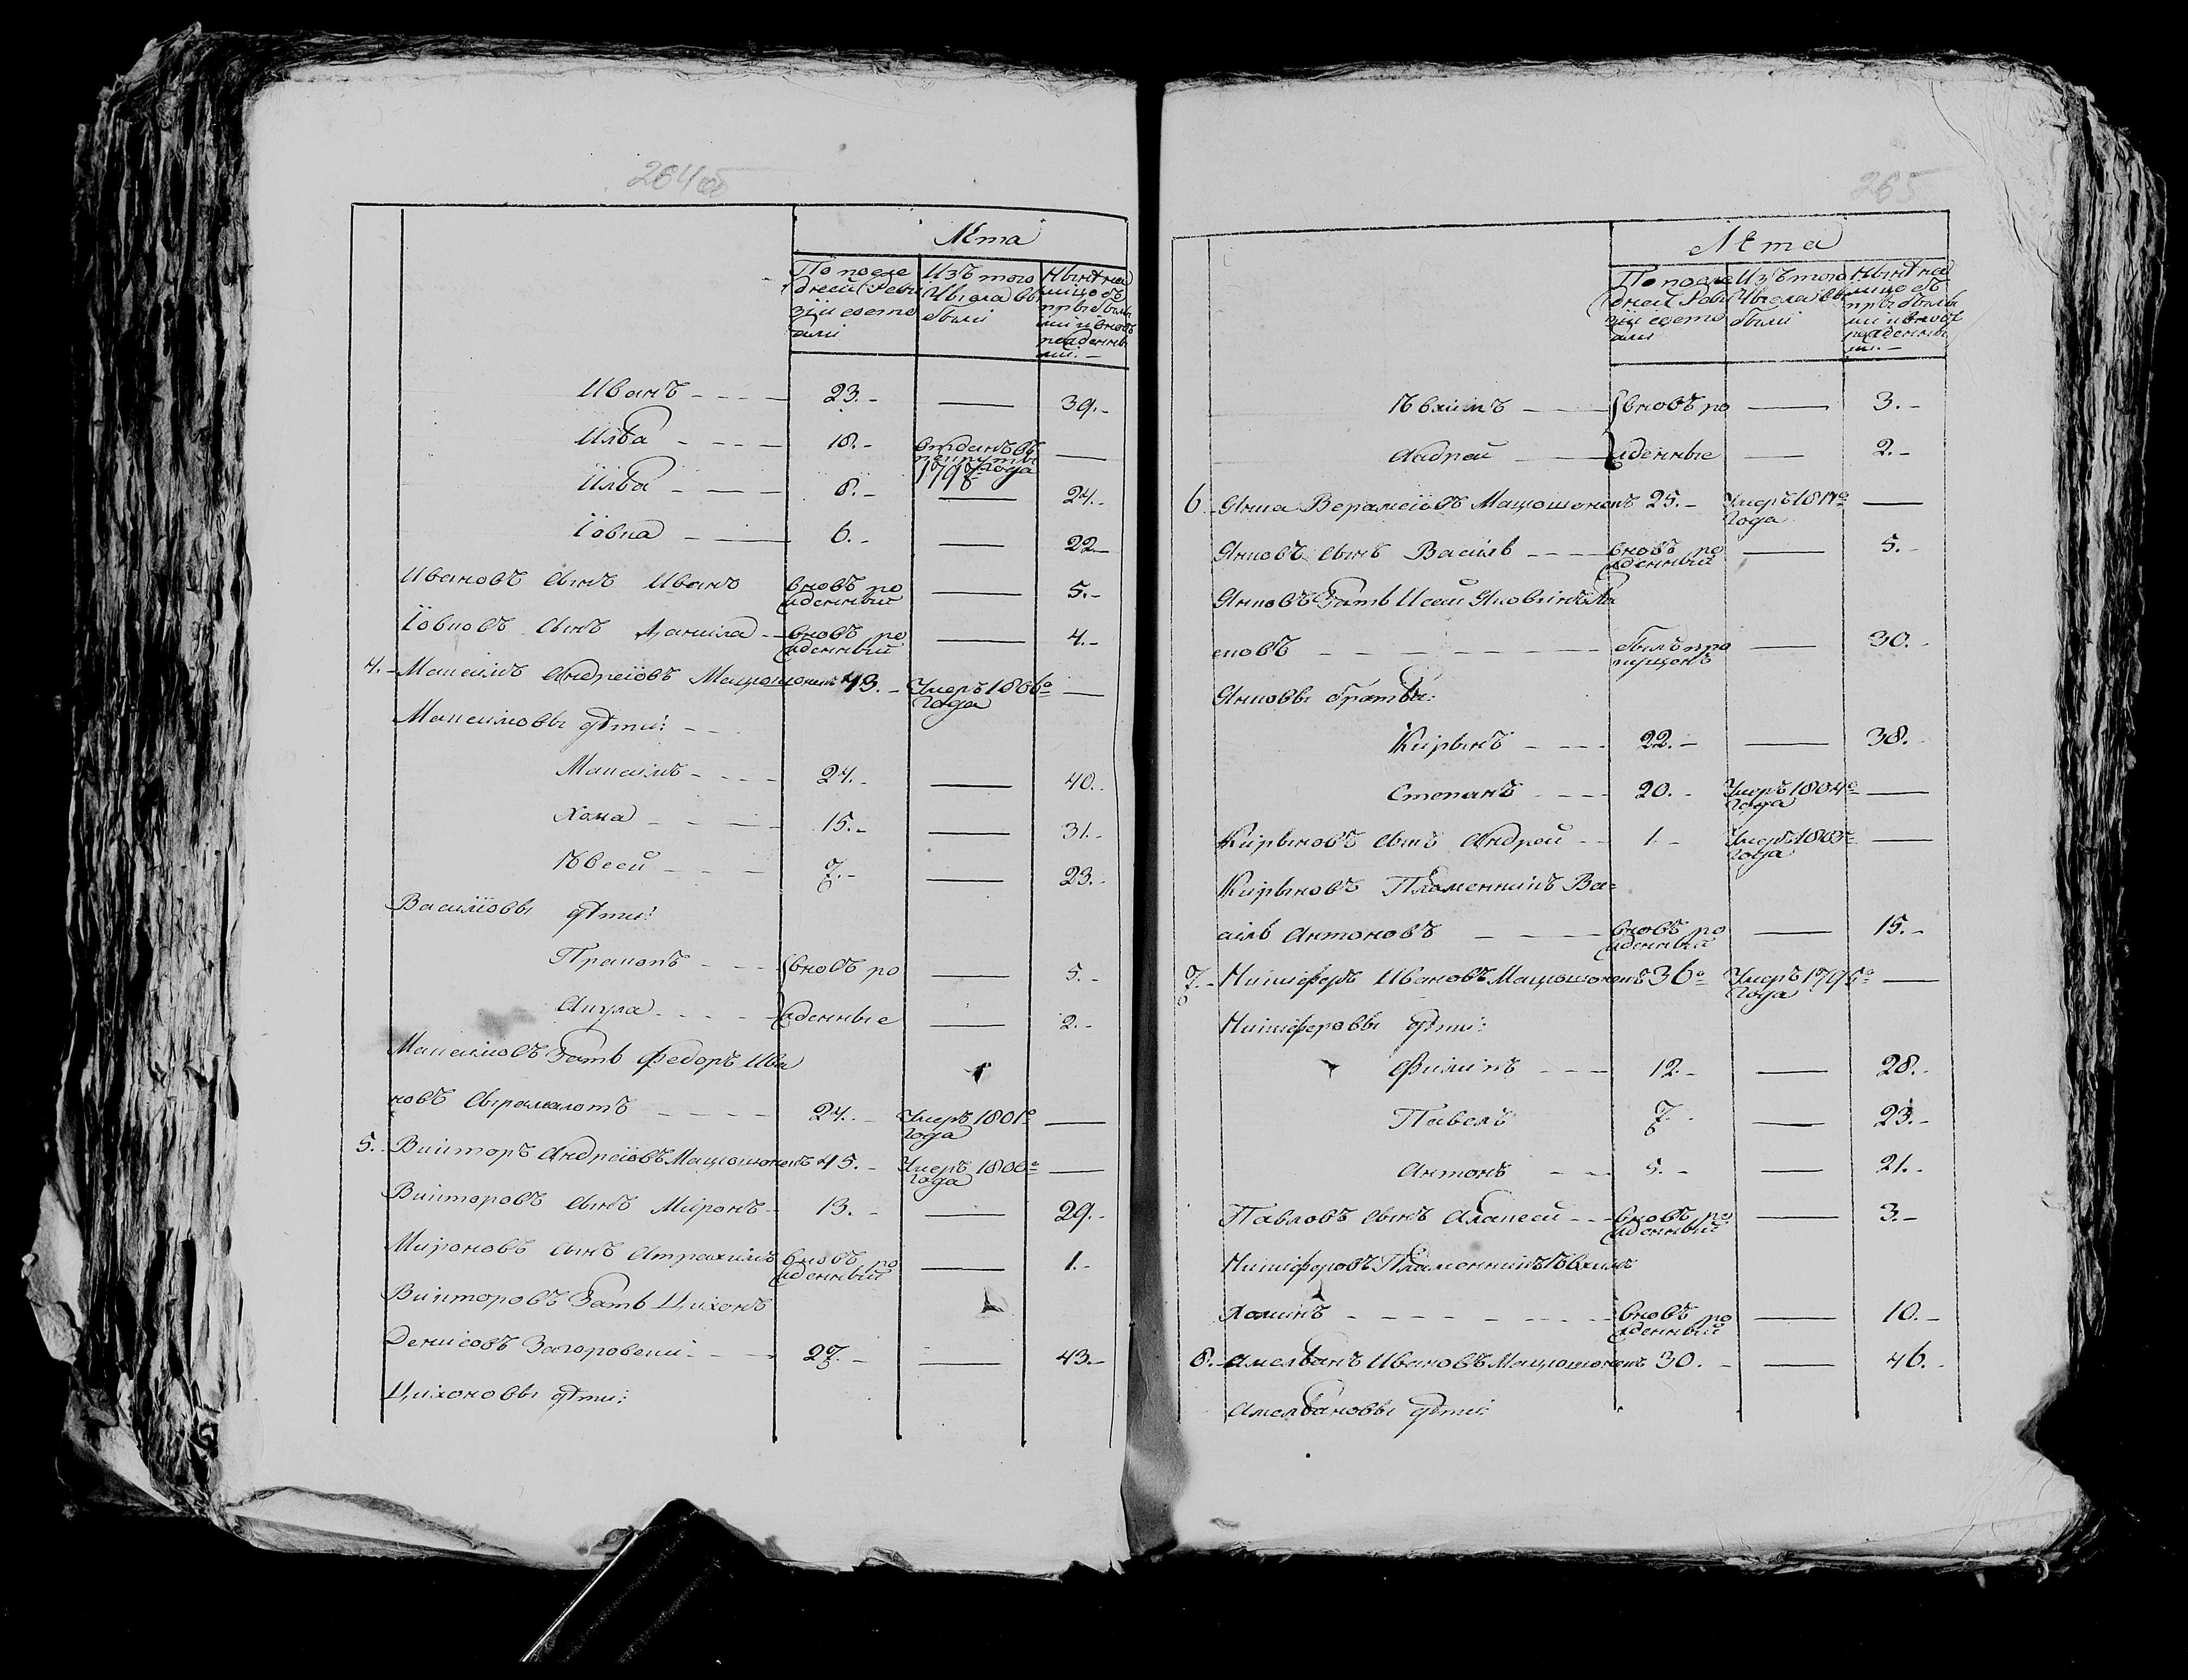 264об
Лѣта
По после
дней Реви
зіи состо
яли
Изъ того
Числа вы
были
Нынѣ на
лицо съ
прибылы
ми и вновь
рожденны
ми. —
Иванъ - - - - 23. - — 39. -
Илья - - - - 18. - отданъ въ
рекруты
1798 года —
Илья - — - — 8. - — 24. -
Іовна - — 6. - — 22 -
Ивановъ сынъ Иванъ вновь ро
жденный — 5. -
Іовновъ сынъ Данила - - вновь ро
жденный — 4. -
4. - Максимъ Андреіовъ Мацюшонокъ 43. - Умеръ 1806го
года —
Максимовы дѣти: - -
Максимъ - - - - 24. - — 40. -
Хома - - — - 15. - — 31. -
Евсей - - — - 7. - — 23. -
Василіовы дѣти:
Пракопъ - - - вновь ро — 5. -
Акула - - - - - жденные — 2. -
Максимовъ Зять Федоръ Ива
новъ Сыромолотъ - - - - 24. - Умеръ 1801го
года —
5. - Викторъ Андреіовъ Мацюшонокъ 45. - Умеръ 1806го
года —
Викторовъ сынъ Миронъ - 13. - — 29. -
Мироновъ сынъ Астрахимъ вновь ро
жденный — 1. -
Викторовъ Зять Цихонъ
Денисовъ Загоровски - - - 27. - — 43. -
Цихоновы дѣти:
265
Лѣта
По после
дней Реви
зіи состо
яли
Изъ того
Числа вы
были
Нынѣ на
лицо съ
прибылы
ми и вновь
рожденны
ми. —
Ѣвхимъ - — вновь ро — 3. -
Андрей — жденные — 2. -
6. - Якша Верамеіовъ Мацюшонокъ 25. - Умеръ 1811го
года —
Якшовъ сынъ Василь - - - вновь ро
жденный — 5. -
Якшовъ Зять Исей Яковлевъ
совъ - - - - - - былъ про
пущонъ — 30. -
Якшовы братья:
Кирынъ - - - - 22. - — 38. -
Степанъ - - - 20. - Умеръ 1804го
года —
Кирыновъ сынъ Андрей - - 1. - Умеръ 1803го
года —
Кирыновъ Племенникъ Ва=
силь Антоновъ - - - вновь ро
жденный — 15. -
7. - Никифоръ Ивановъ Мацюшонокъ 36. - Умеръ 1796го
года —
Никифоровы дѣти:
Филипъ - - - - 12. - — 28. -
Павелъ 7. - — 23. -
Антонъ - - 5. - — 21. -
Павловъ сынъ Алаксей - - - вновь ро
жденный — 3. -
Никифоровъ Племенникъ Ѣвхимъ
Хоминъ - - - - - - - - вновь ро
жденный — 10. -
8. - Амельянъ Ивановъ Мацюшонокъ 30. - — 46. -
Амельяновы дѣти: